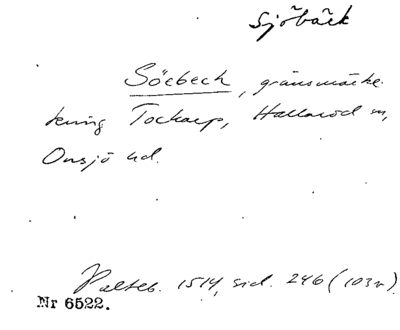 Sjöbäck
Söebech, gränsmärke
kring Tockarp, Hallaröd sn,
Onsjö hd.
Palteb. 1514, sid. 246 (103v)
Nr 6522.